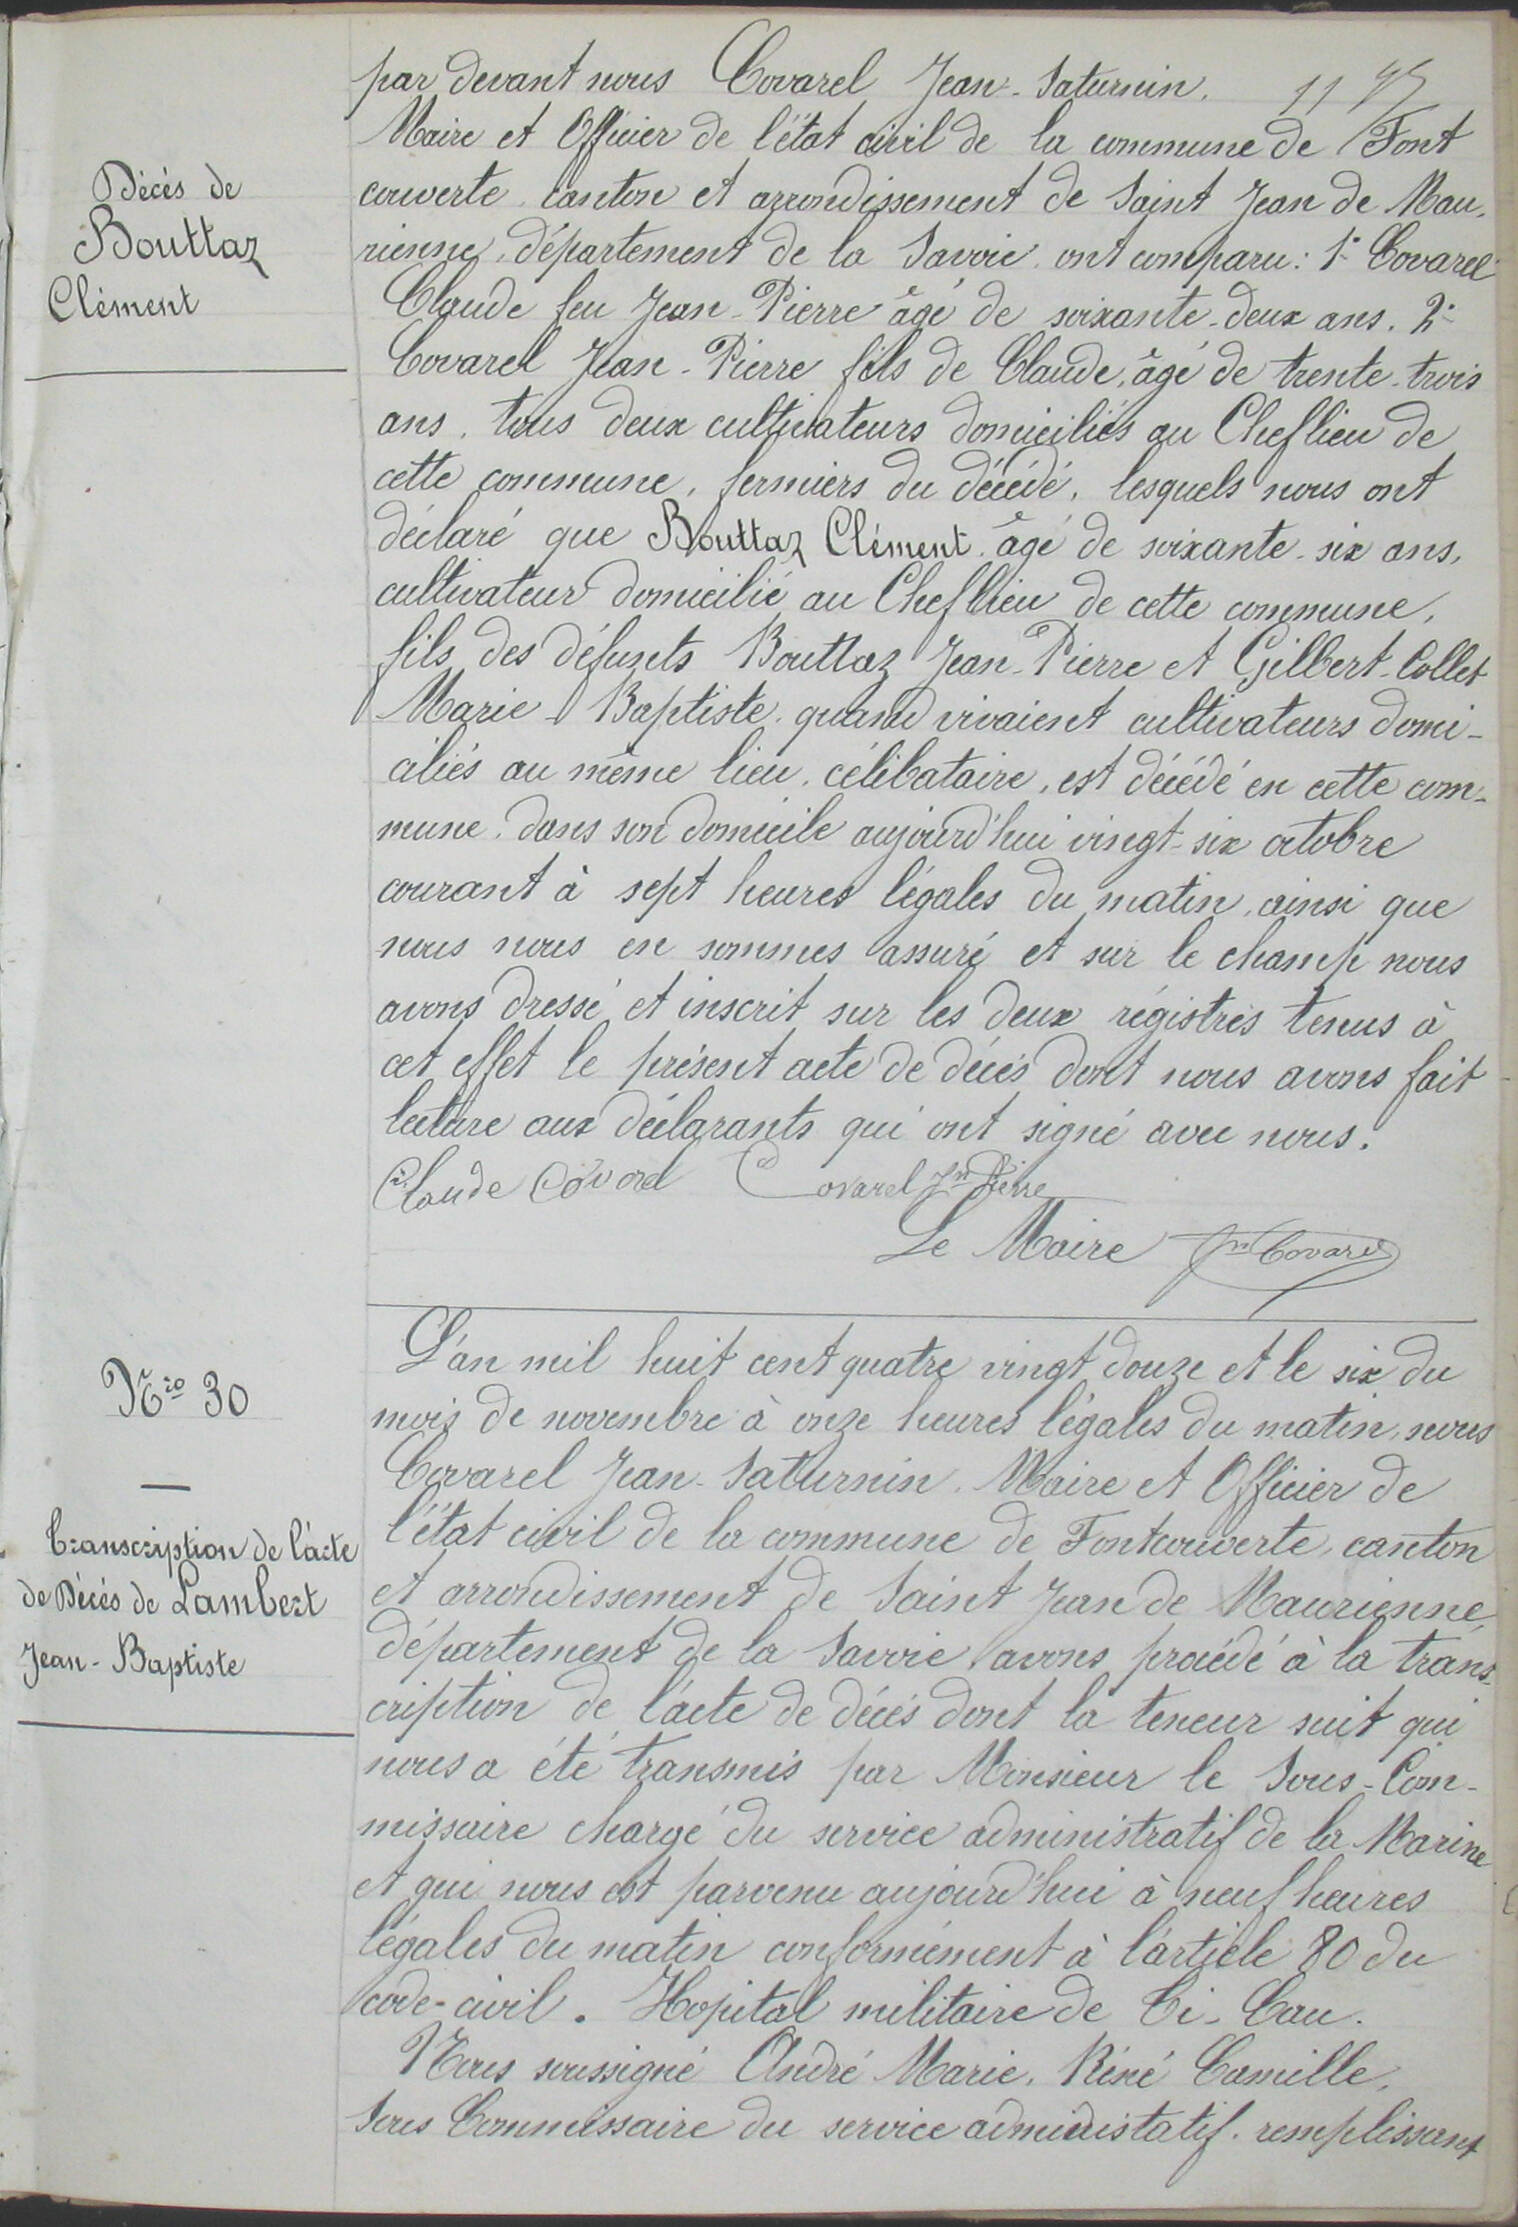 par devant nous Covarel Jean-Saturnin.
11
Maire et Officier de l'état civil de la commune de Font
couverte, canton et arrondissement de Saint Jean de Mau-
rienne, département de la Savoie, ont comparu: 1° Covarel
Claude feu Jean-Pierre âgé de soixante-deux ans. 2°
Covarel Jean-Pierre fils de Claude, âgé de trente-trois
ans, tous deux cultivateurs domiciliés au Cheflieu de
cette commune, fermiers du décédé, lesquels nous ont
déclaré que Bouttaz Clément, âgé de soixante-six ans,
cultivateur domicilié au Cheflieu de cette commune,
fils des défunts Bouttaz Jean-Pierre et Gilbert-Collet
Marie-Baptiste, quand vivaient cultivateurs domi-
ciliés au même lieu, célibataire, est décédé en cette com-
mune, dans son domicile aujourd'hui vingt-six octobre
courant à sept heures légales du matin, ainsi que
nous nous en sommes assuré et sur le champ nous
avons dressé et inscrit sur les deux régistres tenus à
cet effet le présent acte de décès dont nous avons fait
lecture aux déclarants qui ont signé avec nous.
Claude Covarel Covarel Jn Pierre
Le Maire Jn Covarel
Décès de
Bouttaz
Clément
L'an mil huit cent quatre vingt douze et le six du
mois de novembre à onze heures légales du matin, nous
Covarel Jean-Saturnin, Maire et Officier de
l'état civil de la commune de Fontcouverte, canton
et arrondissement de Saint Jean de Maurienne,
département de la Savoie, avons procédé à la trans-
cription de l'acte de décès dont la teneur suit qui
nous a été transmis par Monsieur le Sous-Com-
missaire chargé du service administratif de la Marine
et qui nous est parvenu aujourd'hui à neuf heures
légales du matin conformément à l'article 80 du
code-civil. Hopital militaire de Ti-Cau.
Nous soussigné André Marie, Réné Camille,
Sous Commissaire du service administatif, remplissant
Nro 30
Transcription de l'acte
de Décès de Lambert
Jean-Baptiste